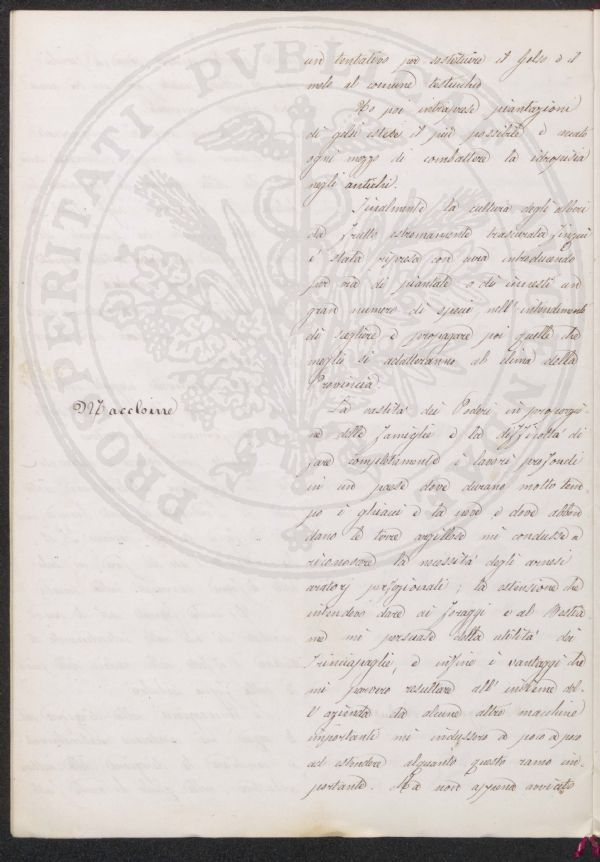 un tentativo per sostituire il Gelso e il
melo al comune testucchio
Ho poi intraprese piantazioni
di gelsi estese il più possibile e usato
ogni mezzo di combattere la idropisia
negli antichi.
Finalmente la cultura degli alberi
da frutto estremamente trascurata finqui
è stata ripresa con cura introducendo
per via di piantate o di innesti un
gran numero di specie nell'intendimento
di scegliere e propagare poi quelle che
meglio si adatteranno al clima della
Provincia.
Macchine
La vastità dei Poderi in proporzio-
ne delle famiglie e la difficoltà di
fare completamente i lavori profondi
in un paese dove durano molto tem-
po i ghiacci e la neve e dove abbon-
dano le terre argillose mi condusse a
riconoscere la necessità degli arnesi
aratorj perfezionati; la estensione che
intendevo dare ai foraggi e al Bestia-
me mi persuase della utilità dei
Trinciapaglie, e infine i vantaggi che
mi parvero resultare all'insieme del-
l'azienda da alcune altre macchine
importanti mi indussero a poco a poco
ad estendere alquanto questo ramo im-
portante. Ma non appena avviato
PROSPERITATI PVBLICAE